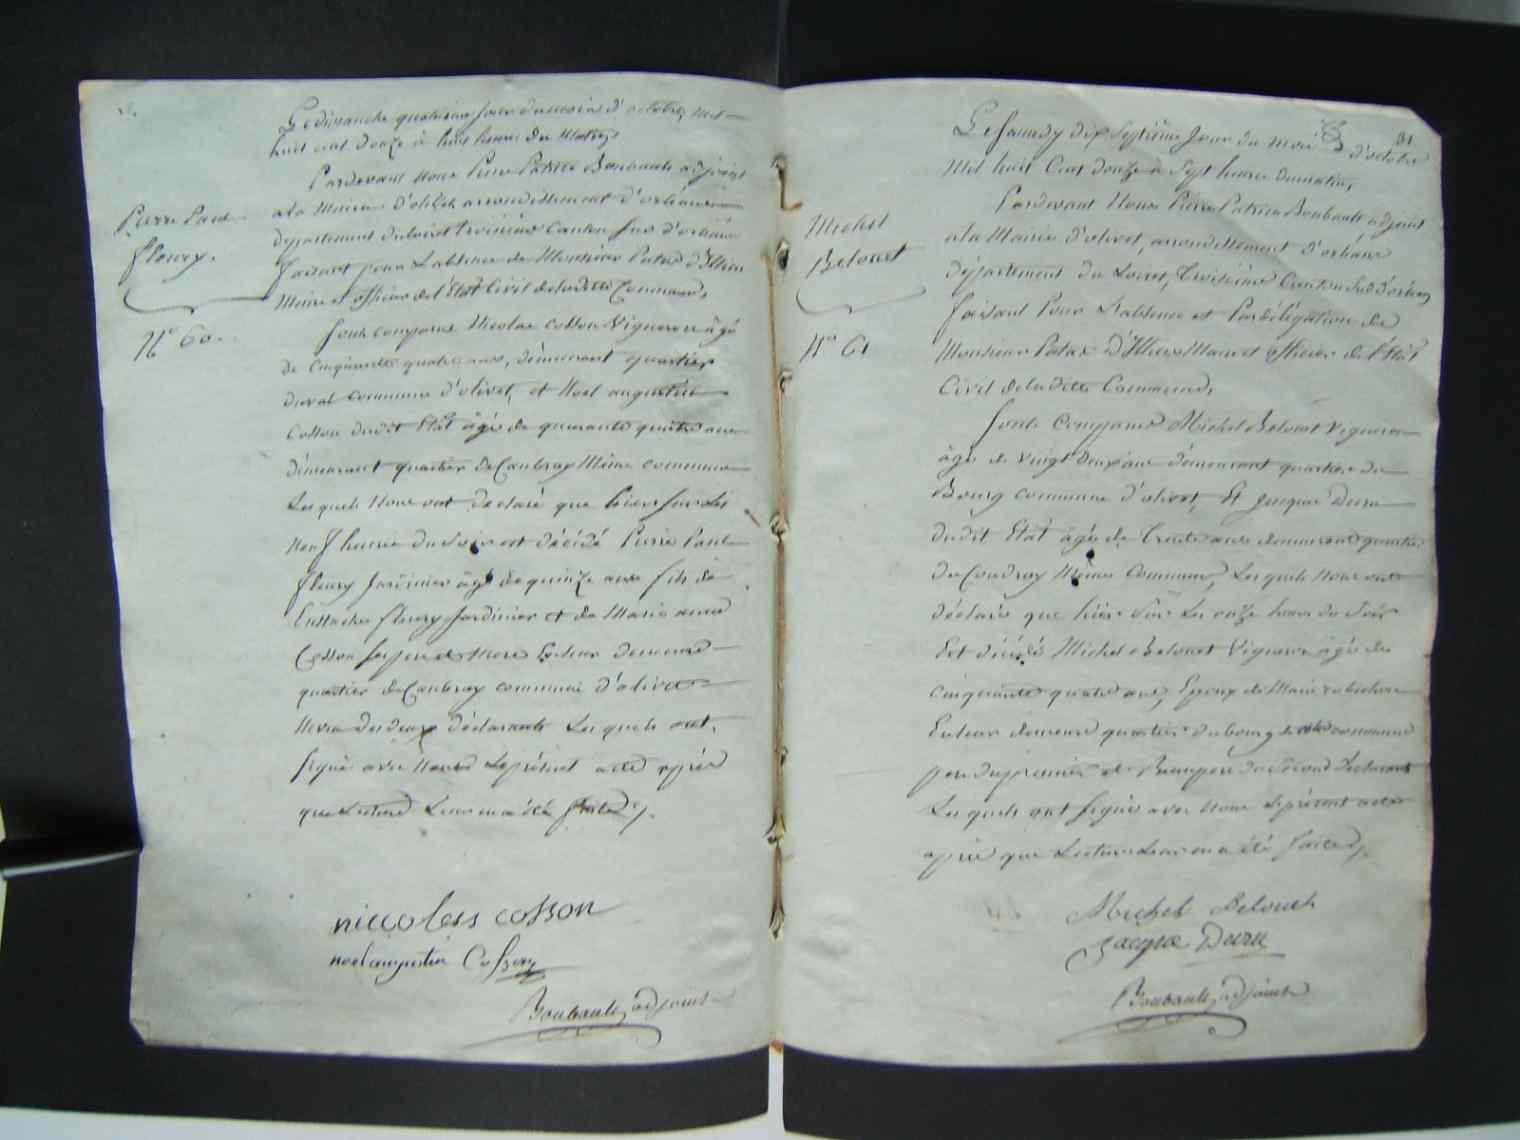 Le dimanche quatrième jour du mois d'octobre mil
huit cent douze à huit heures du matin,
Pardevant nous Pierre Patrice Boubault adjoint
a la Mairie d'olivet arrondissement d'orléans
département du loiret troisième Canton sud d'orléans
faisant pour l'absence de Monsieur Patas d'Illiers
Maire et officier de l'Etat Civil de laditte Commune,
Pierre Paul
fleury.
N° 60.
sont comparus Nicolas cosson Vigneron âgé
de Cinquante quatre ans, demeurant quartier
duval commune d'olivet, et Noel augustin
Cosson dudit Etat âgé de quarante quatre ans
démeurant quartier de Caubray Même commune
Lesquels Nous ont déclaré que hier sur les
neuf heures du soir est décédé Pierre Paul
fleury Jardinier âgé de quinze ans fils de
Eustache fleury Jardinier et de Marie anne
Cosson ses pere et Mere Luileur demeure
quartier de Caubray commune d'olivet
Neveu des deux déclarants Lesquels ont
signé avec Nous Le présent acte après
que Lecture Leur en a été faite,
niccolas cosson
noel augustin Cosson
Boubault, adjoint
31
Le samedy dix septième Jour du mois d'octobre
Mil huit Cent douze à sept heures du matin,
Pardevant Nous Pierre Patrice Boubault adjoint
a la Mairie d'olivet, arrondissement d'orléans
département du Loiret, troisième Canton sud d'orléans
faisant Pour L'absence et Par délégation de
Monsieur Patas D'Illiers Maire et officier de l'Etat
Civil de laditte Commune,
Michel
Belouet
N° 61
sont Comparus Michel Belouet Vigneron
âgé de vingt deux ans démeurant quartier du
Bourg commune d'olivet, Et Jacque Duru
dudit Etat âgé de trente ans demeurant quartier
du Coudray Même Commune, Lesquels Nous ont
déclaré que hier sur Les onze heures du soir
Est décédé Michel Belouet Vigneron âgé de
cinquante quatre ans, Epoux de Marie
Luileur demeure quartier du bourg de commune
pere du premier et Beaupere du second déclarant
Lesquels ont signé avec Nous Le présent acte
après que Lecture Leur en a été faite,
Michel Belouet
Jacque Duru
Boubault, adjoint